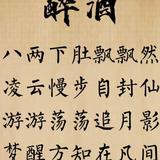 醉酒
八两下肚飘飘然
凌云慢步自封仙
游游荡荡追月影
梦醒方知在凡间